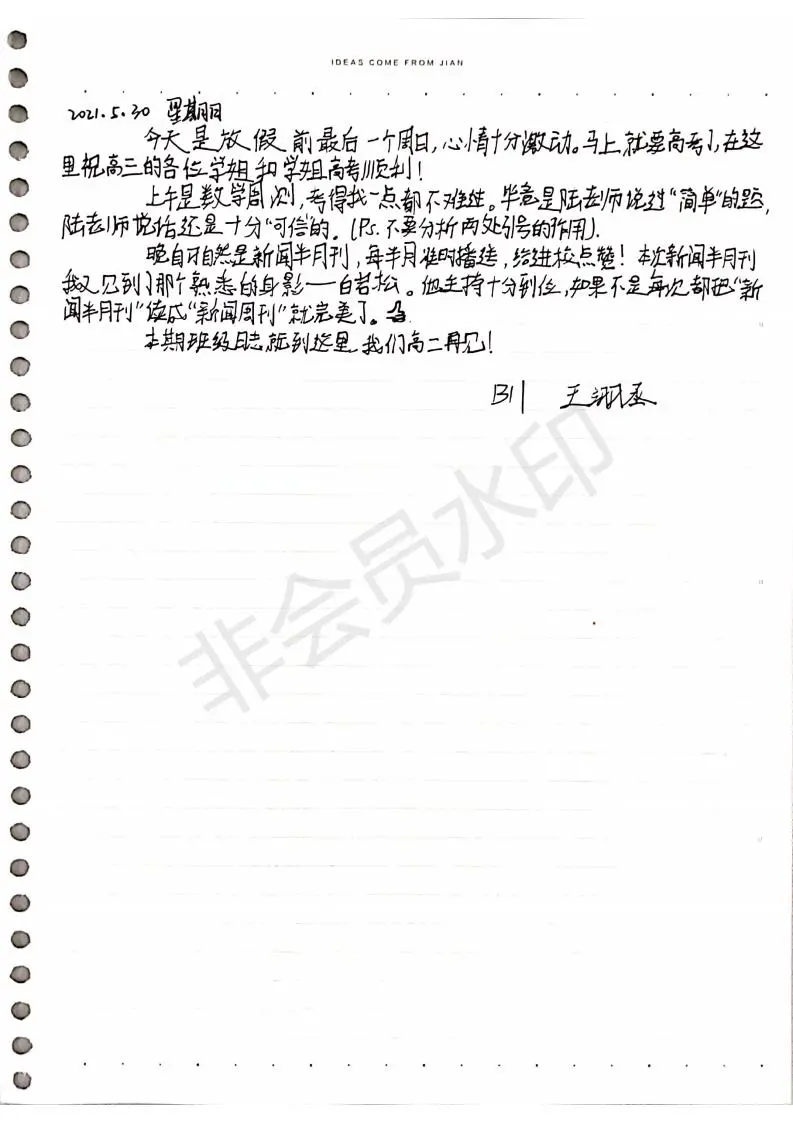 IDEAS COME FROM JIAN
2021.5.30 星期日
今天是放假前最后一个周日,心情十分激动。马上就要高考了,在这
里祝高三的各位学姐和学姐高考顺利!
上午是数学周测,考得我一点都不难过。毕竟是陆老师说过“简单”的题,
陆老师说话还是十分“可信”的。(Ps.不要分析两处引号的作用).
晚自习自然是新闻半月刊,每半月准时播送,给进校点赞!本次新闻半月刊
我又见到了那个熟悉的身影——白岩松。他主持十分到位,如果不是每次都把“新
闻半月刊”读成“新闻周刊”就完美了。
本期班级日志就到这里,我们高二再见!
B11 王翊丞
非会员水印